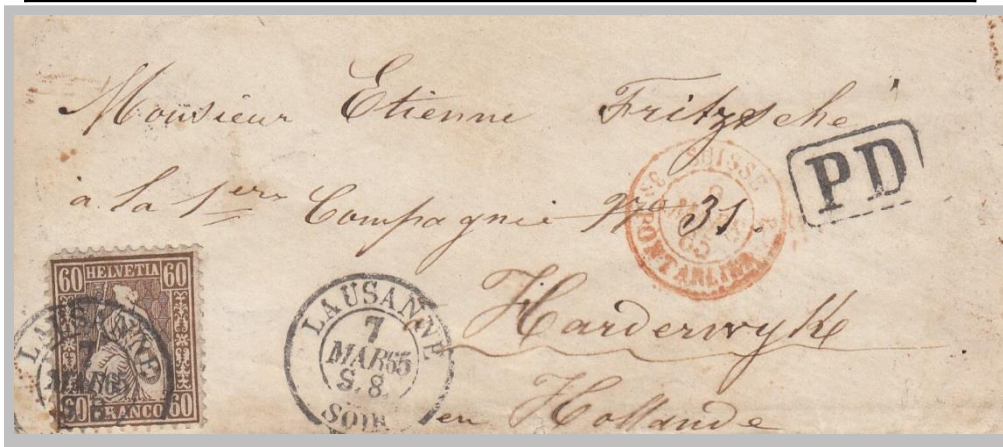 Monsieur Etienne Fritzsche
à la 1ere Compagnie No 31.
Harderwyk
en Hollande
PD
SUISSE
8
MARS
65
PONTARLIER
60 HELVETIA 60
60 FRANCO 60
LAUSANNE
7
MAR 65
LAUSANNE
7
MAR 65
S. 8.
SOIR